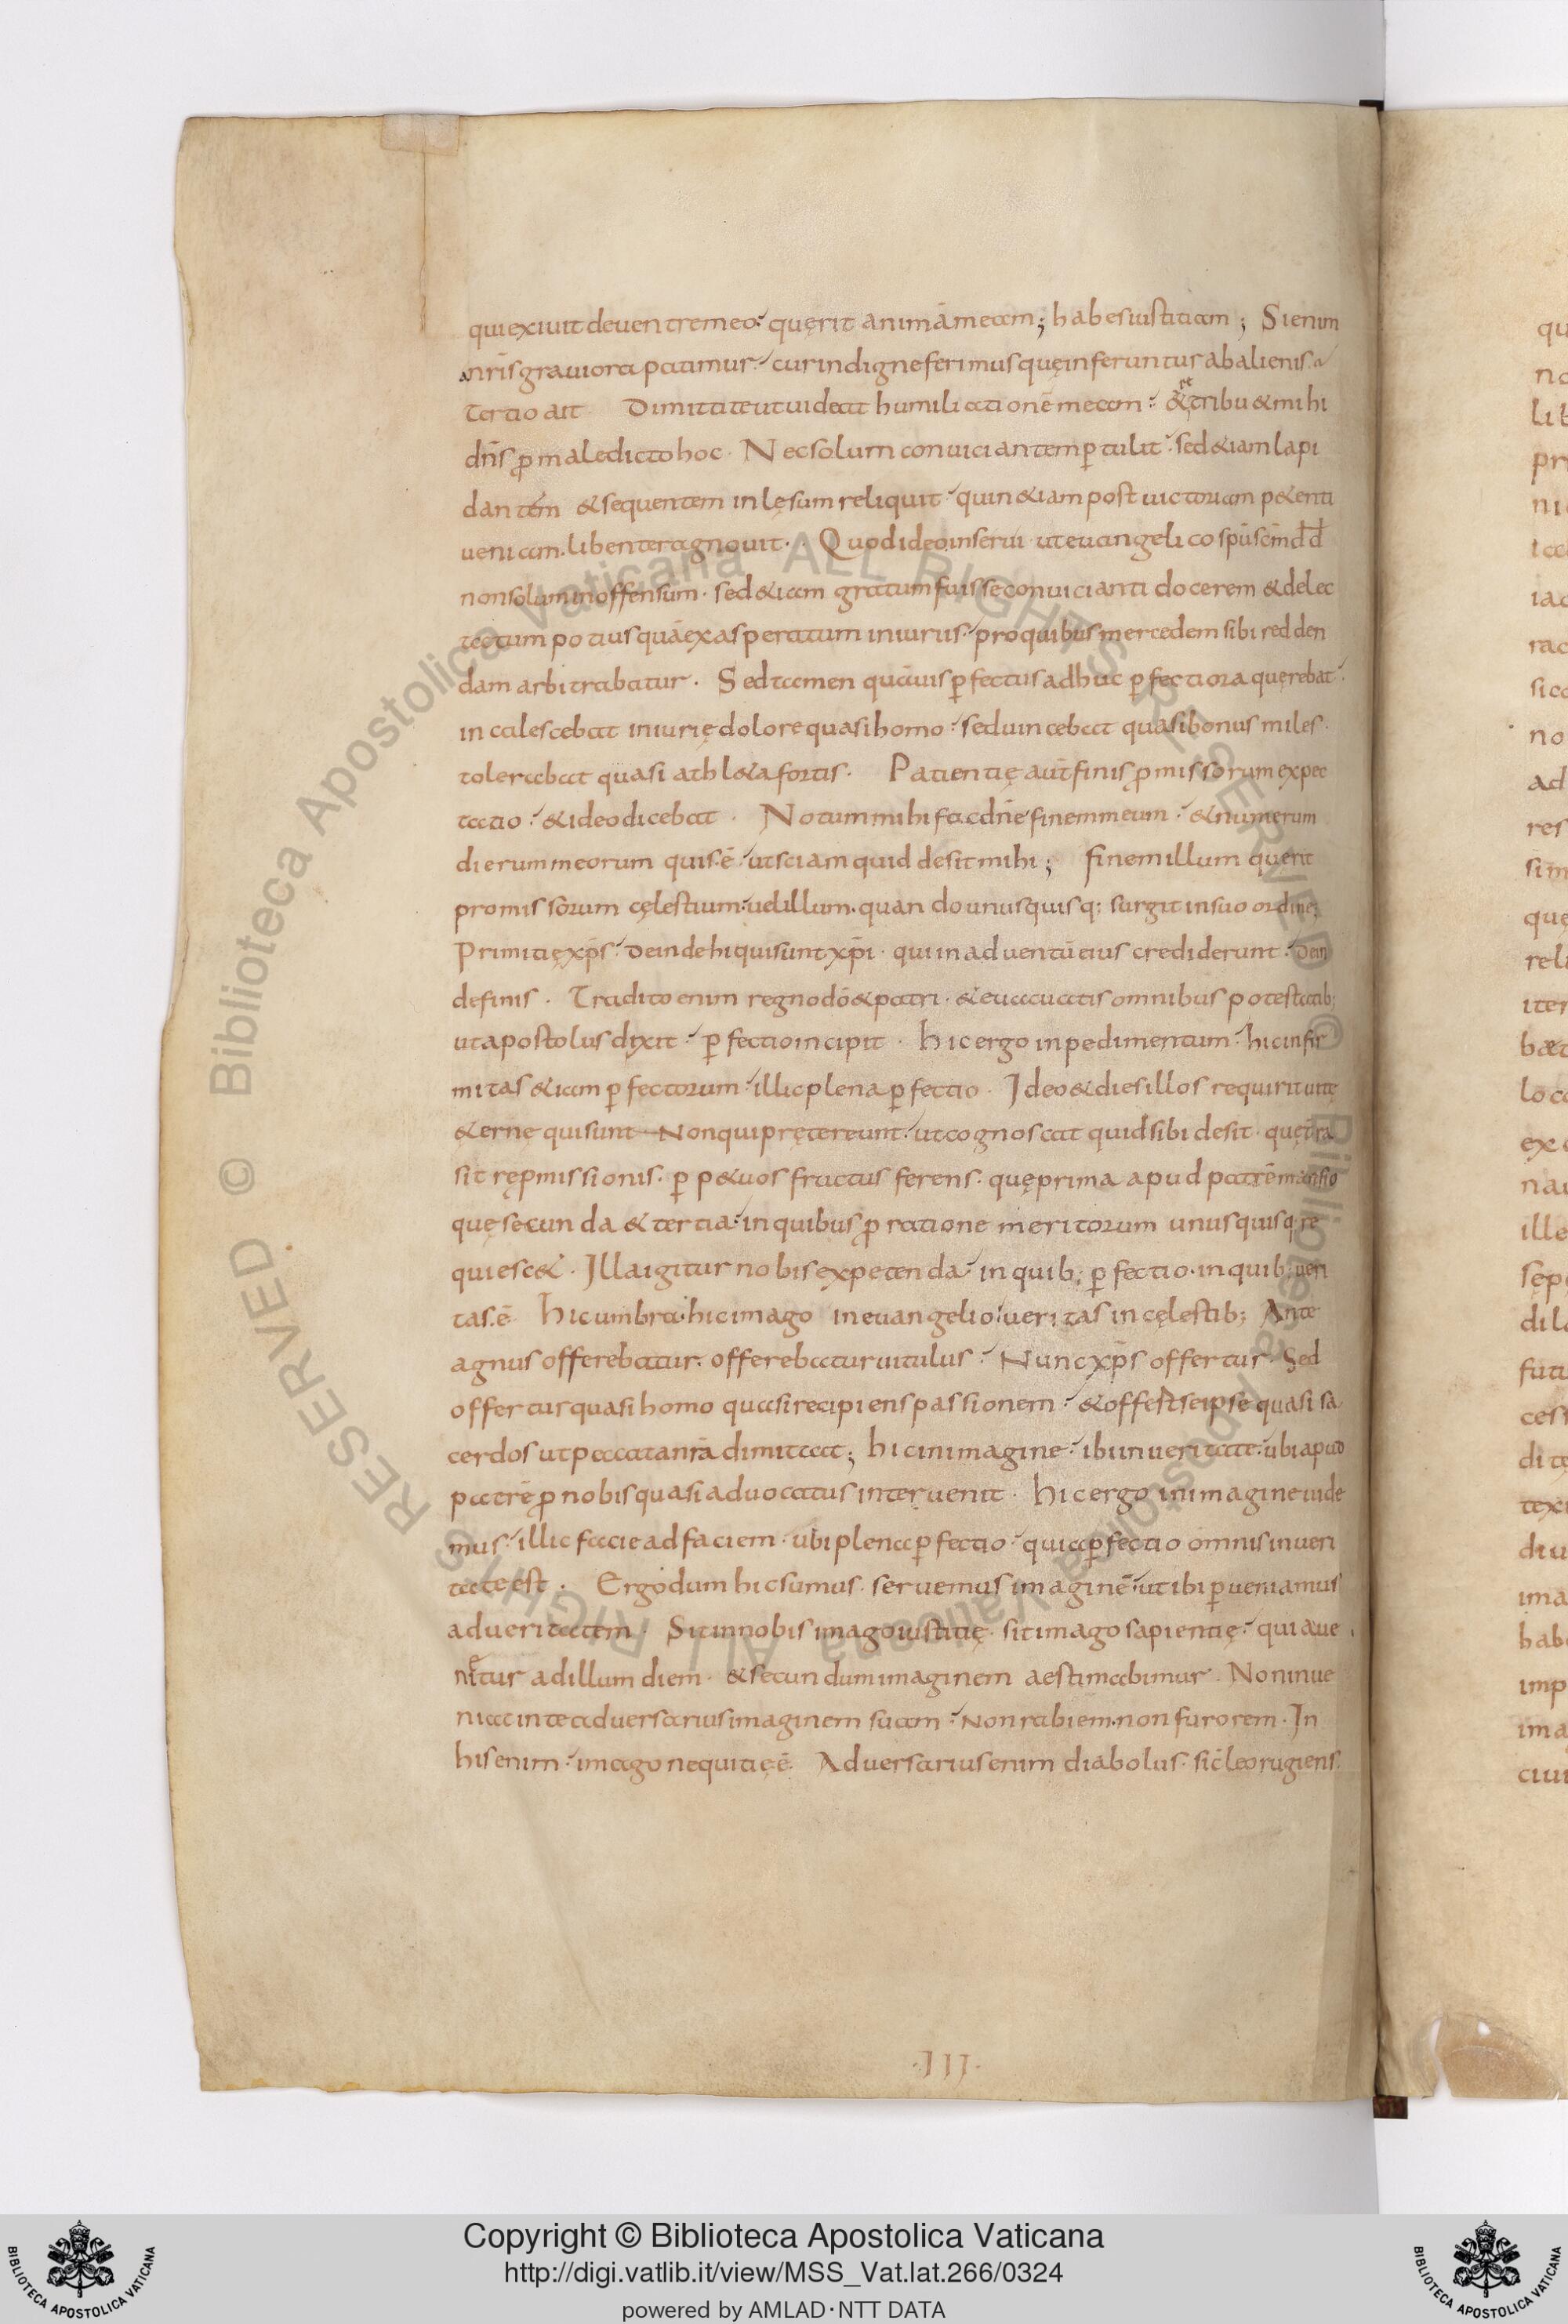 qui exiuit de uentre meo quęrit animā meam; habes iustitiam; Si enim
a nr̄is grauiora patimur cur indigne ferimus quę inferuntur ab alienis
Tertio ait Dimitti te ut uideat humiliationē meam & retribu& mihi
dn̄s ꝓ maledicto hoc. Nec solum conuiciantem ꝑtulit sed &iam lapi
dantem & sequentem inlęsum reliquit quin &iam post uictoriam p&enti
ueniam. libenter agnouit. Quod ideo inserui ut euangelico spū sc̄m dd
non solum inoffensum. sed &iam gratum fuisse conuicianti docerem & delec
tatum potius quā exasperatum iniuriis pro quibus mercedem sibi redden
dam arbitrabatur. Sed tamen quāuis ꝑfectus adhuc ꝑfectiora quęrebat
incalescebat iniurię dolore quasi homo sed uincebat quasi bonus miles.
tolerabat quasi athl&a fortis. Patientię aūt finis ꝓmissorum expec
tatio & ideo dicebat. Notum mihi fac dn̄e finem meum & numerum
dierum meorum quis. ē ut sciam quid desit mihi; finem illum querit
promissorum cęlestium uel illum. quando unusquisq; surgit in suo ordine;
Primitię xp̄s deinde hi qui sunt xp̄i. qui in aduentū eius crediderunt. Dein
de finis. Tradito enim regno dō & patri. & euacuatis omnibus potestatib;
ut apostolus dixit ꝑfectio incipit. hic ergo inpedimentum hic infir
mitas &iam ꝑfectorum illic plena ꝑfectio. Ideo & dies illos requirit uitę
&ernę qui sunt Non qui prętereunt. ut cognoscat quid sibi desit. quę t̄ra
sit rępmissionis. ꝑp&uos fructus ferens. quę prima apud patrē mansio
quę secunda & tertia in quibus ꝓ ratione meritorum unusquisq; re
quiesc&. Illa igitur nobis expetenda in quib; ꝑfectio. in quib; ueri
tas. ē hic umbra hic imago in euangelio ueritas in cęlestib; Ante
agnus offerebatur. offerebatur uitulus Nunc xp̄s offertur. Sed
offertur quasi homo quasi recipiens passionem & offert se ipse quasi sa
cerdos ut peccata nr̄a dimittat; hic in imagine ibi in ueritate ubi apud
patrē ꝓ nobis quasi aduocatus interuenit. hic ergo in imagine uide
mus illic facie ad faciem. ubi plena ꝑfectio quia ꝑfectio omnis in ueri
tate est. Ergo dum hic sumus. seruemus imaginē ut ibi ꝑueniamus
ad ueritatem. Sit in nobis imago iustitię. sit imago sapientię quia ue
nietur ad illum diem. & secundum imaginem aestimabimur. Non inue
niat in te aduersarius imaginem suam Non rabiem. non furorem. In
his enim imago nequitię ē. Aduersarius enim diabolus. sic̄ leo rugiens.
·III·
Copyright © Biblioteca Apostolica Vaticana
http://digi.vatlib.it/view/MSS_Vat.lat.266/0324
powered by AMLAD·NTT DATA